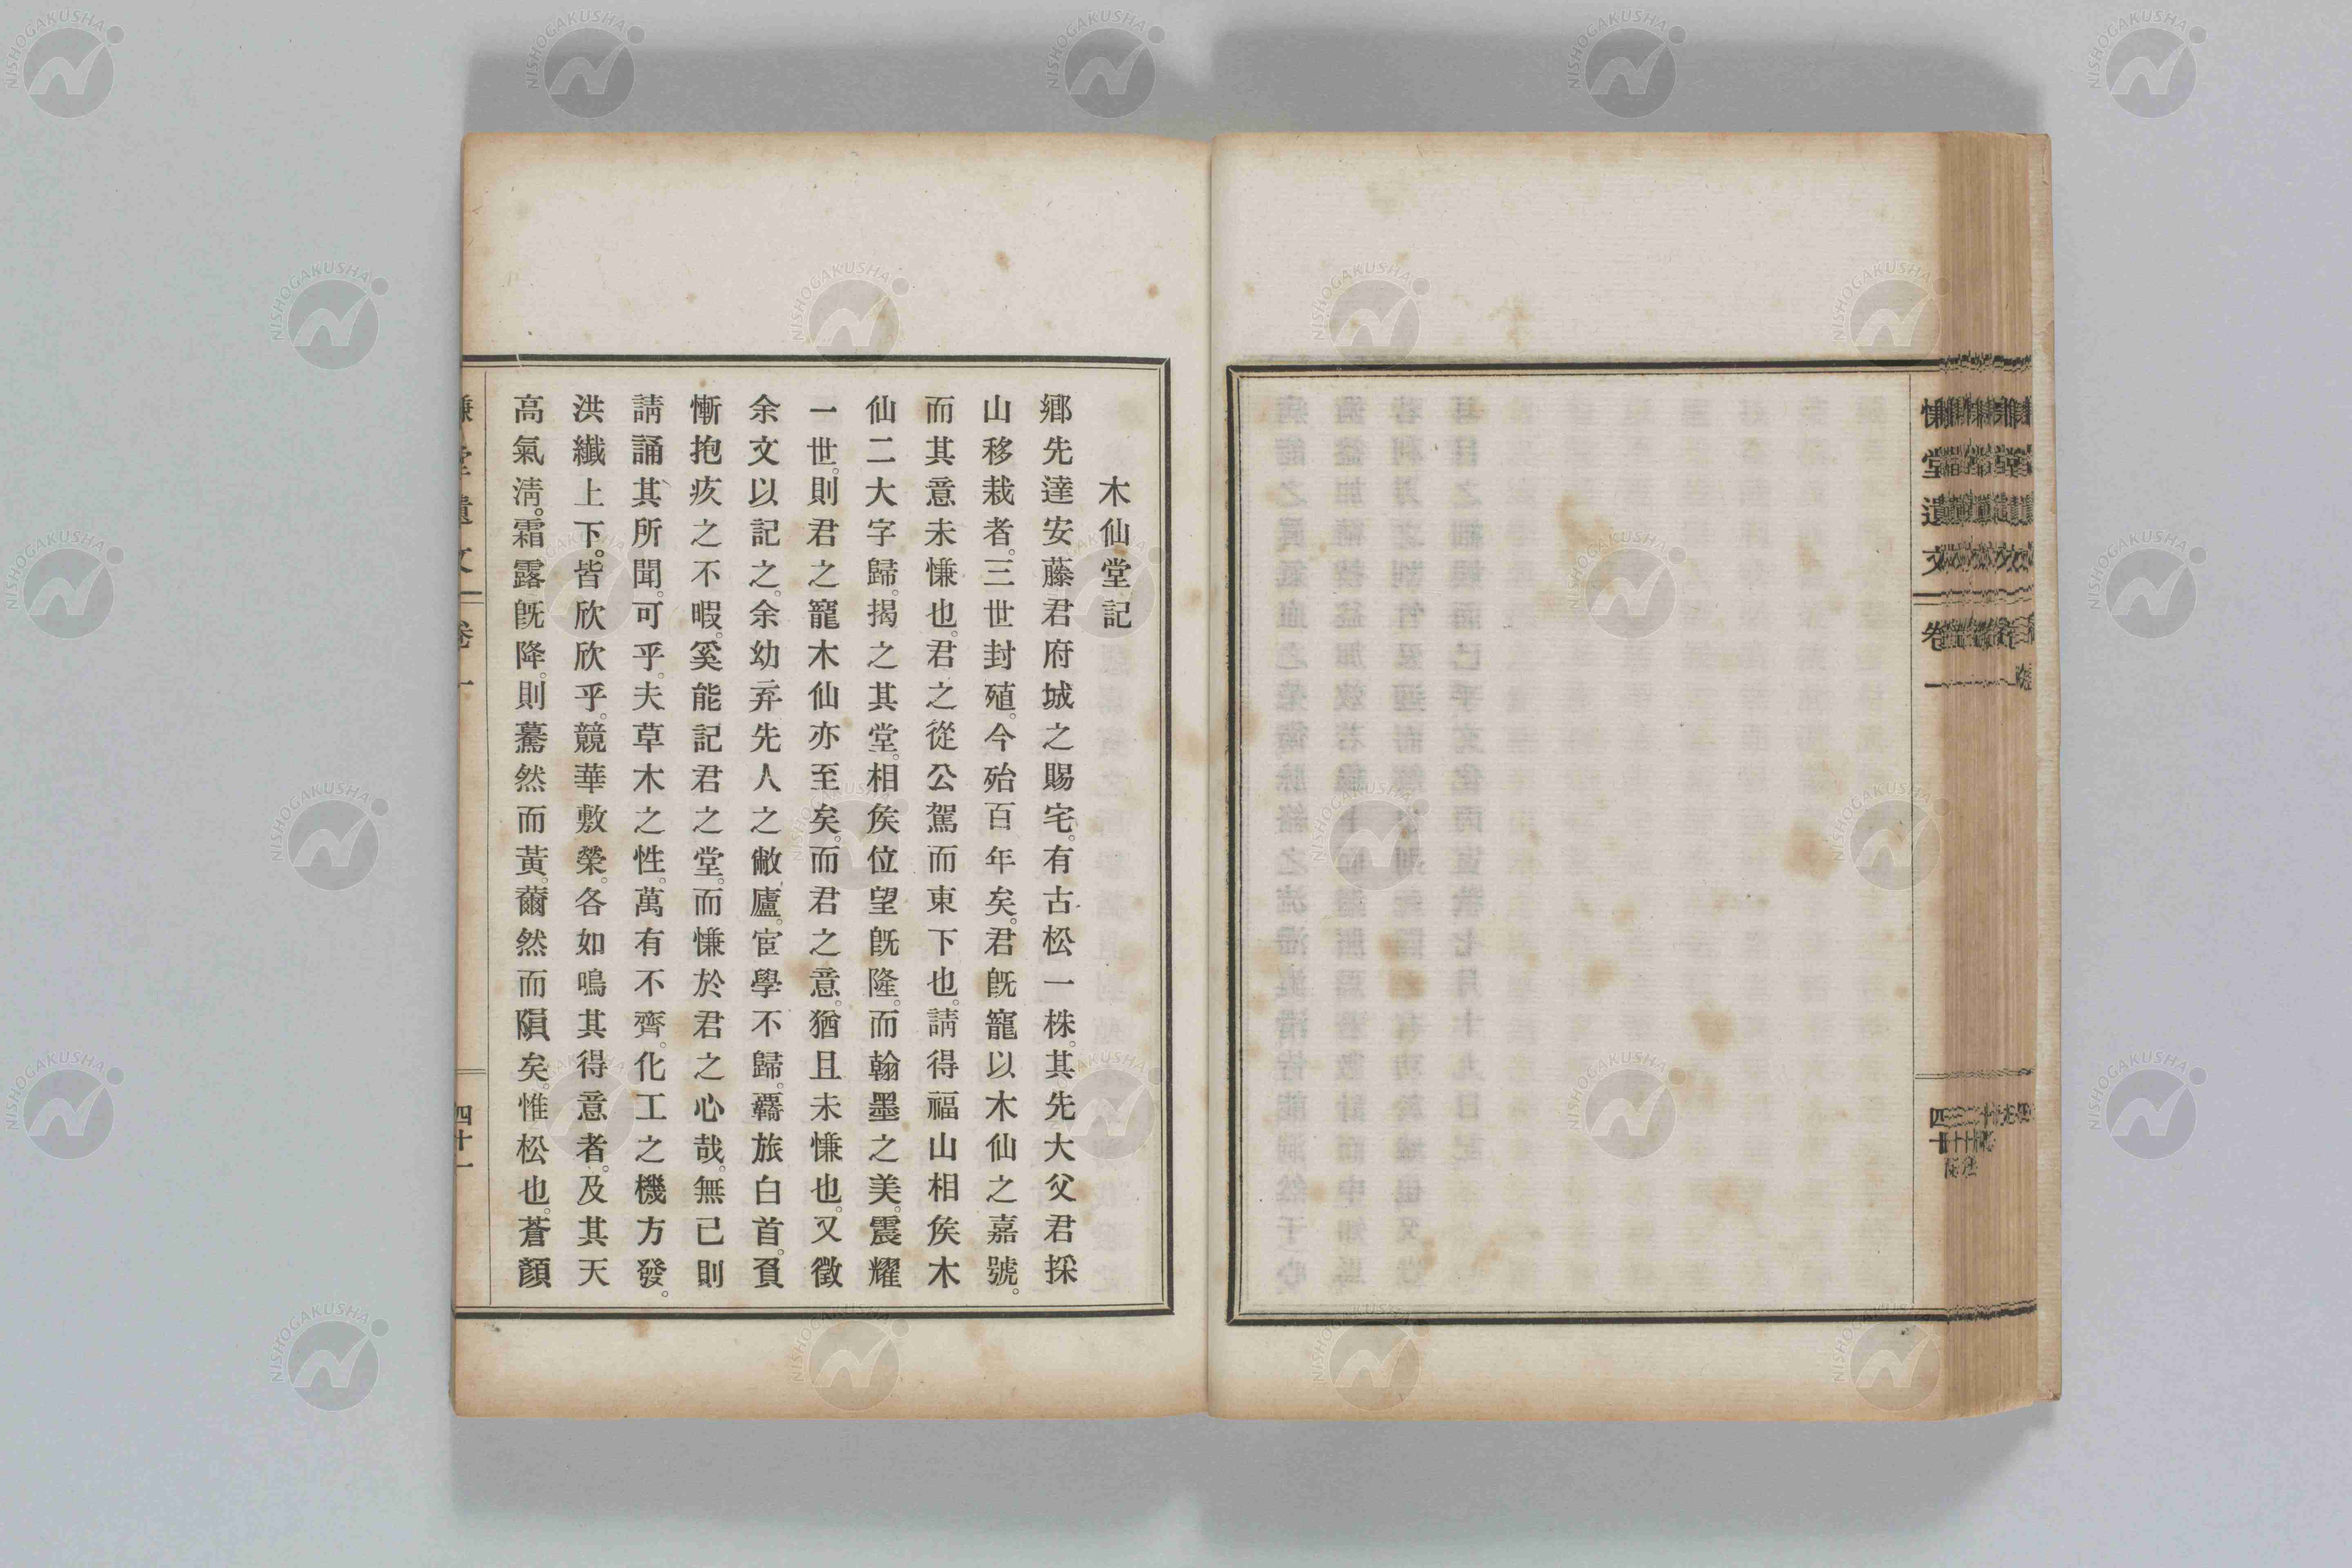 慊堂遺文
卷一
木仙堂記
鄕先達安藤君府城之賜宅。有古松一株。其先大父君採
山移栽者。三世封殖。今殆百年矣。君旣寵以木仙之嘉號。
而其意未慊也。君之從公駕而東下也。請得福山相矦木
仙二大字歸。揭之其堂。相矦位望旣隆。而翰墨之美。震耀
一世。則君之寵木仙亦至矣。而君之意。猶且未慊也。又徵
余文以記之。余幼弃先人之敝廬。宦學不歸。羇旅白首。負
慚抱疚之不暇。奚能記君之堂。而慊於君之心哉。無已則
請誦其所聞。可乎。夫草木之性。萬有不齊。化工之機方發。
洪纖上下。皆欣欣乎。競華敷榮。各如鳴其得意者。及其天
高氣淸。霜露旣降。則驀然而黃。薾然而隕矣。惟松也。蒼顏
慊堂遺文 卷一
四十一
NISHOGAKUSHA